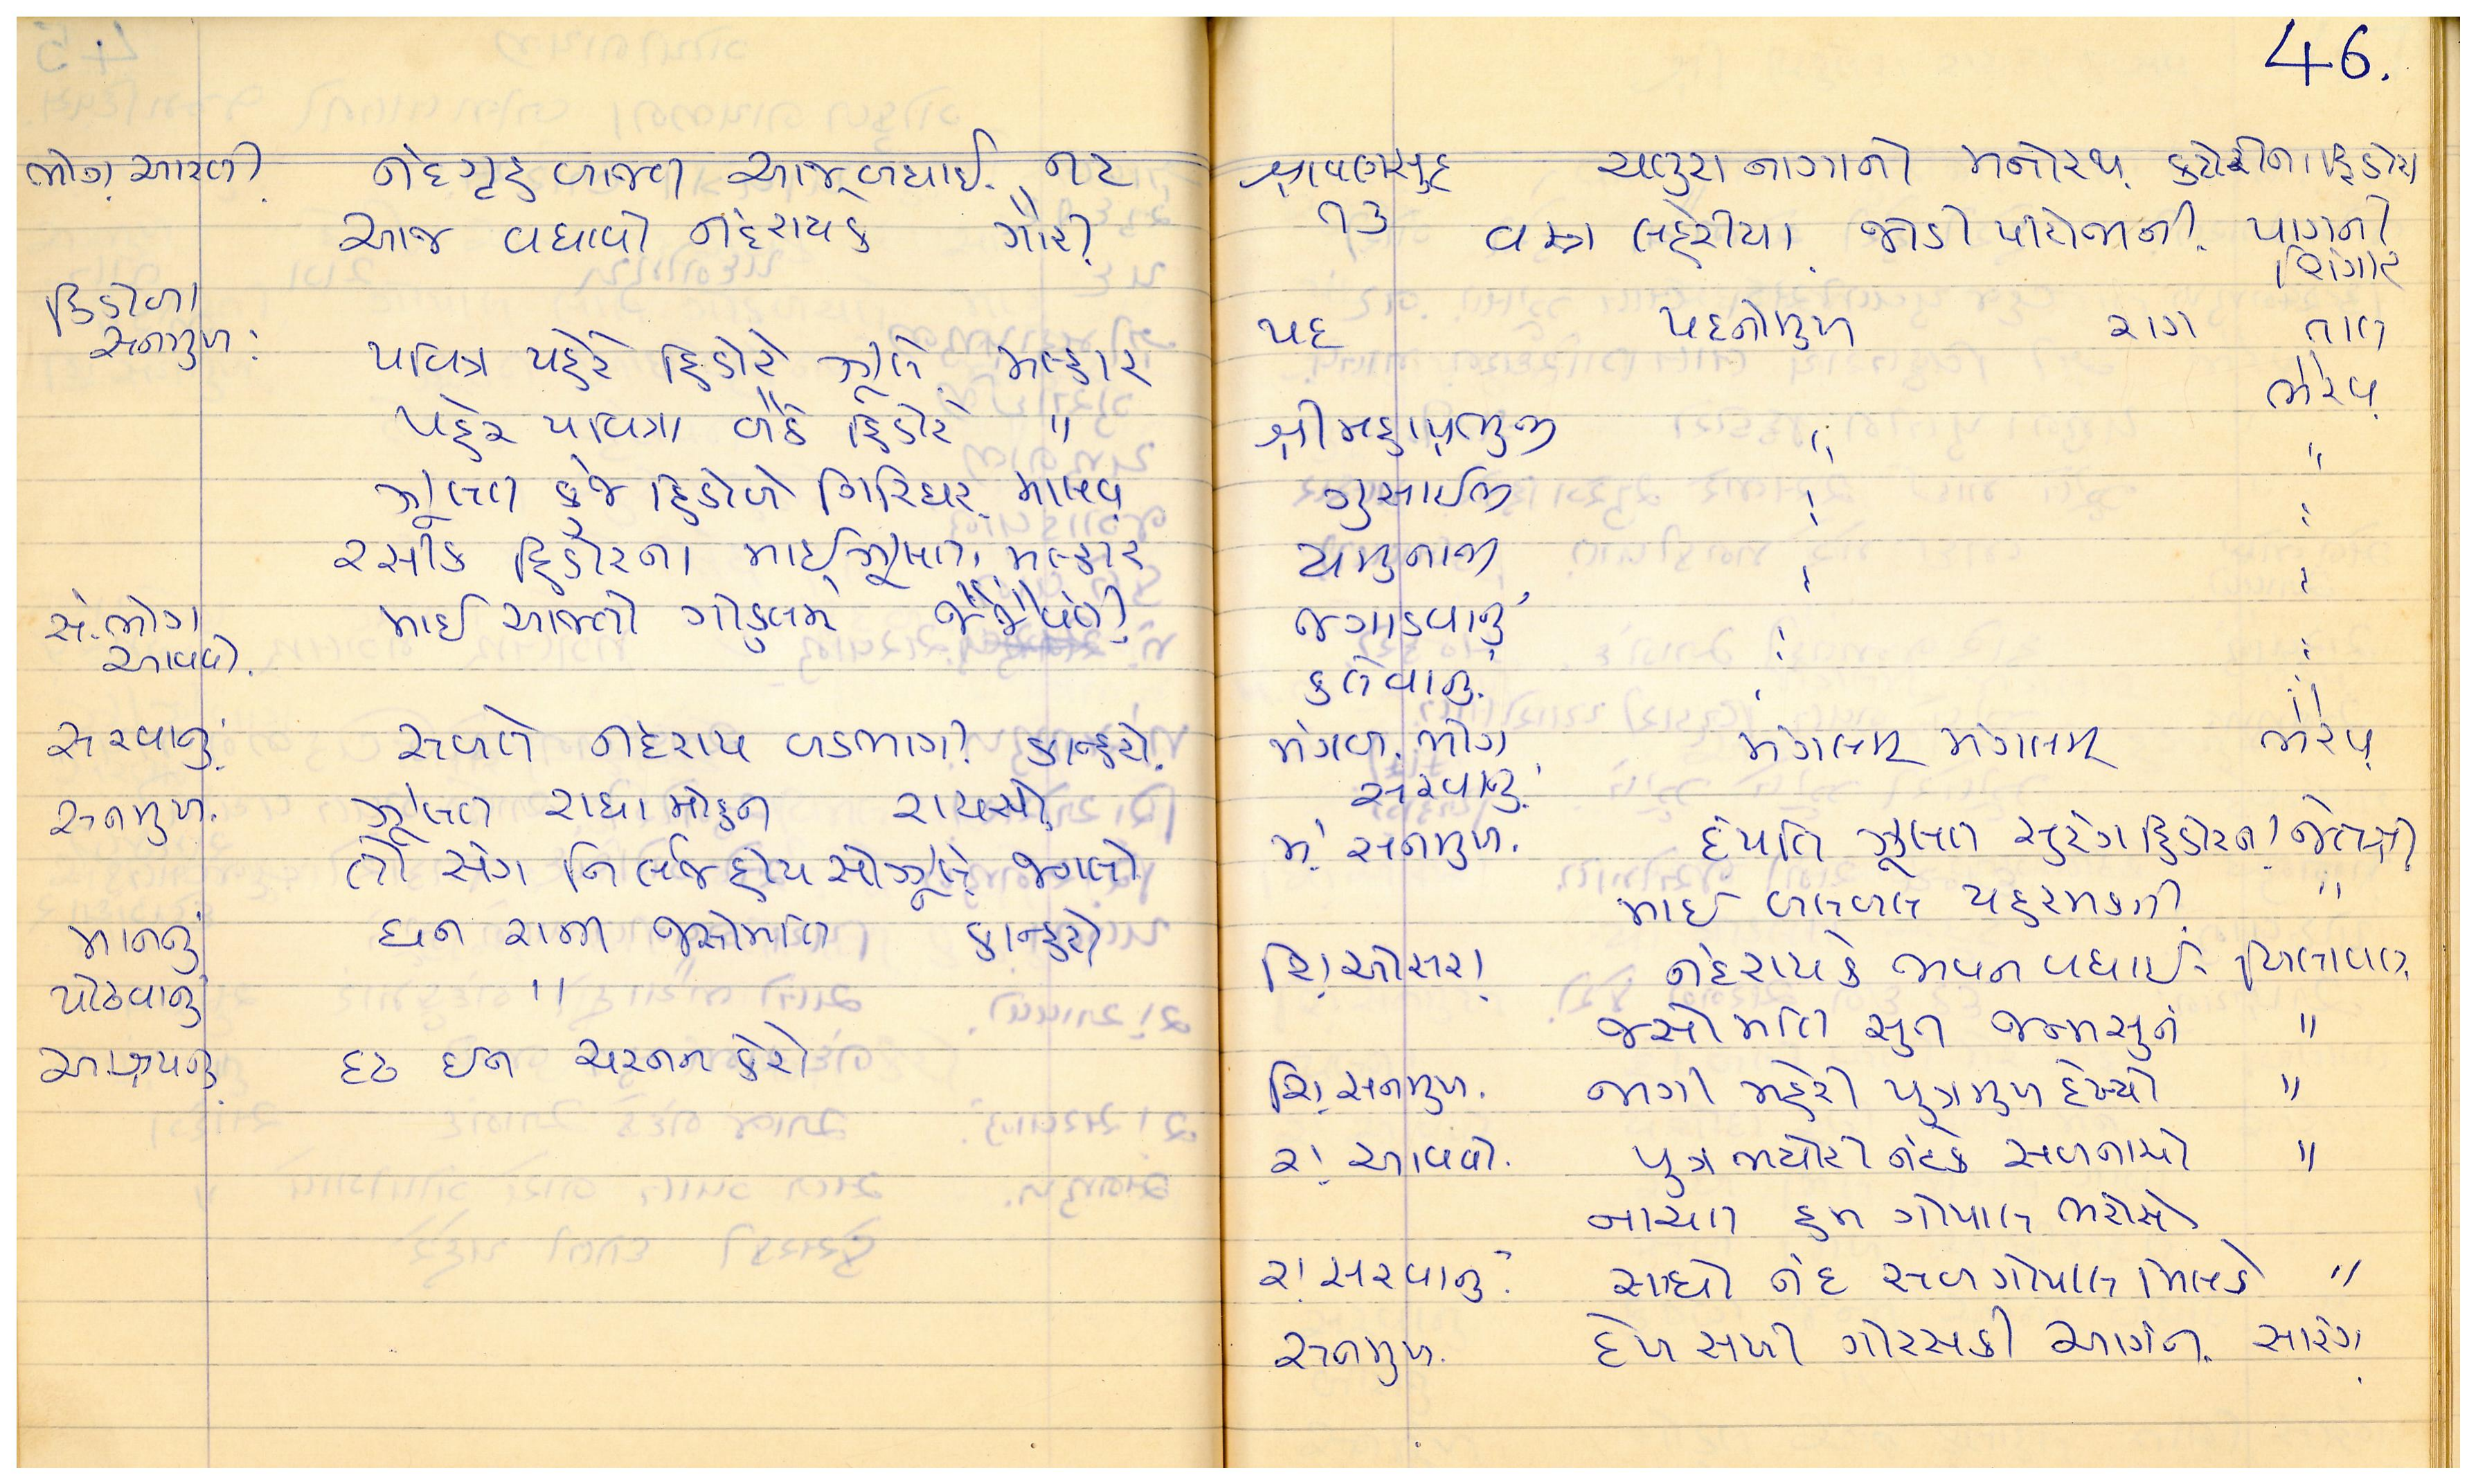 ભોગ. આરતી. નંદગૃહ બાજત આજ બધાઈ. નટ
આજ બધાવો નંદરાયકે ગૌરી.
હિંડોળા
સનમુખ: પવિત્રા પહેરે હિંડોરે ઝૂલે. મલ્હાર
પહેર પવિત્રા બેઠે હિંડોરે "
ઝૂલત કુંજ હિંડોળે ગિરિધર. માલવ.
રસીક હિંડોરના માઈ ઝૂલત. મલ્હાર
સં. ભોગ માઈ આજતો ગોકુલમેં
આવવો.
સરવાનું. સબતે નંદરાય બડભાગી. કાન્હરો.
સનમુખ. ઝૂલત રાધા મોહન રાયસો.
તો સંગ નિ ઝૂલે.
માનનું ધન રાની જસોમતિ કાન્હરો
પોઢવાનું "
આશ્રયનું. દૃઢ ઈન ચરનન કેરો
46.
શ્રાવણસુદ મનોરથ. હિંડોરા
૧૩ વસ્ત્ર લહેરીયા. જોડી પીરોજાની. પાગની
શિંગાર
પદ પદનોમુખ રાગ તાલ
ભૈરવ.
શ્રીમહાપ્રભુજી " "
ગુસાઈજી : :
યમુનાજી : :
જગાડવાનું : :
કલેવાનું. "
મંગળ. ભોગ મંગલમ્ મંગલમ્ ભૈરવ.
સરવાનું.
મં. સનમુખ. દંપતિ ઝૂલત સુરંગ હિંડોરના.
માઈ "
શિં. ઓસરા. નંદરાયકે ભવન બધાઈ. બિલાવલ.
જસોમતિ સુત જન્મસુનં "
શિં. સનમુખ. જાગી મહેરી પુત્રમુખ દેખ્યો "
રા. આવવો. પુત્ર ભયોરી નંદકે "
નાચત હમ ગોપાલ ભરોસે
રા. સરવાનું. રાધો નંદ સબ ગોપાલ મિલકે "
સનમુખ. દેખ સખી ગોરસકી આગંન. સારંગ.